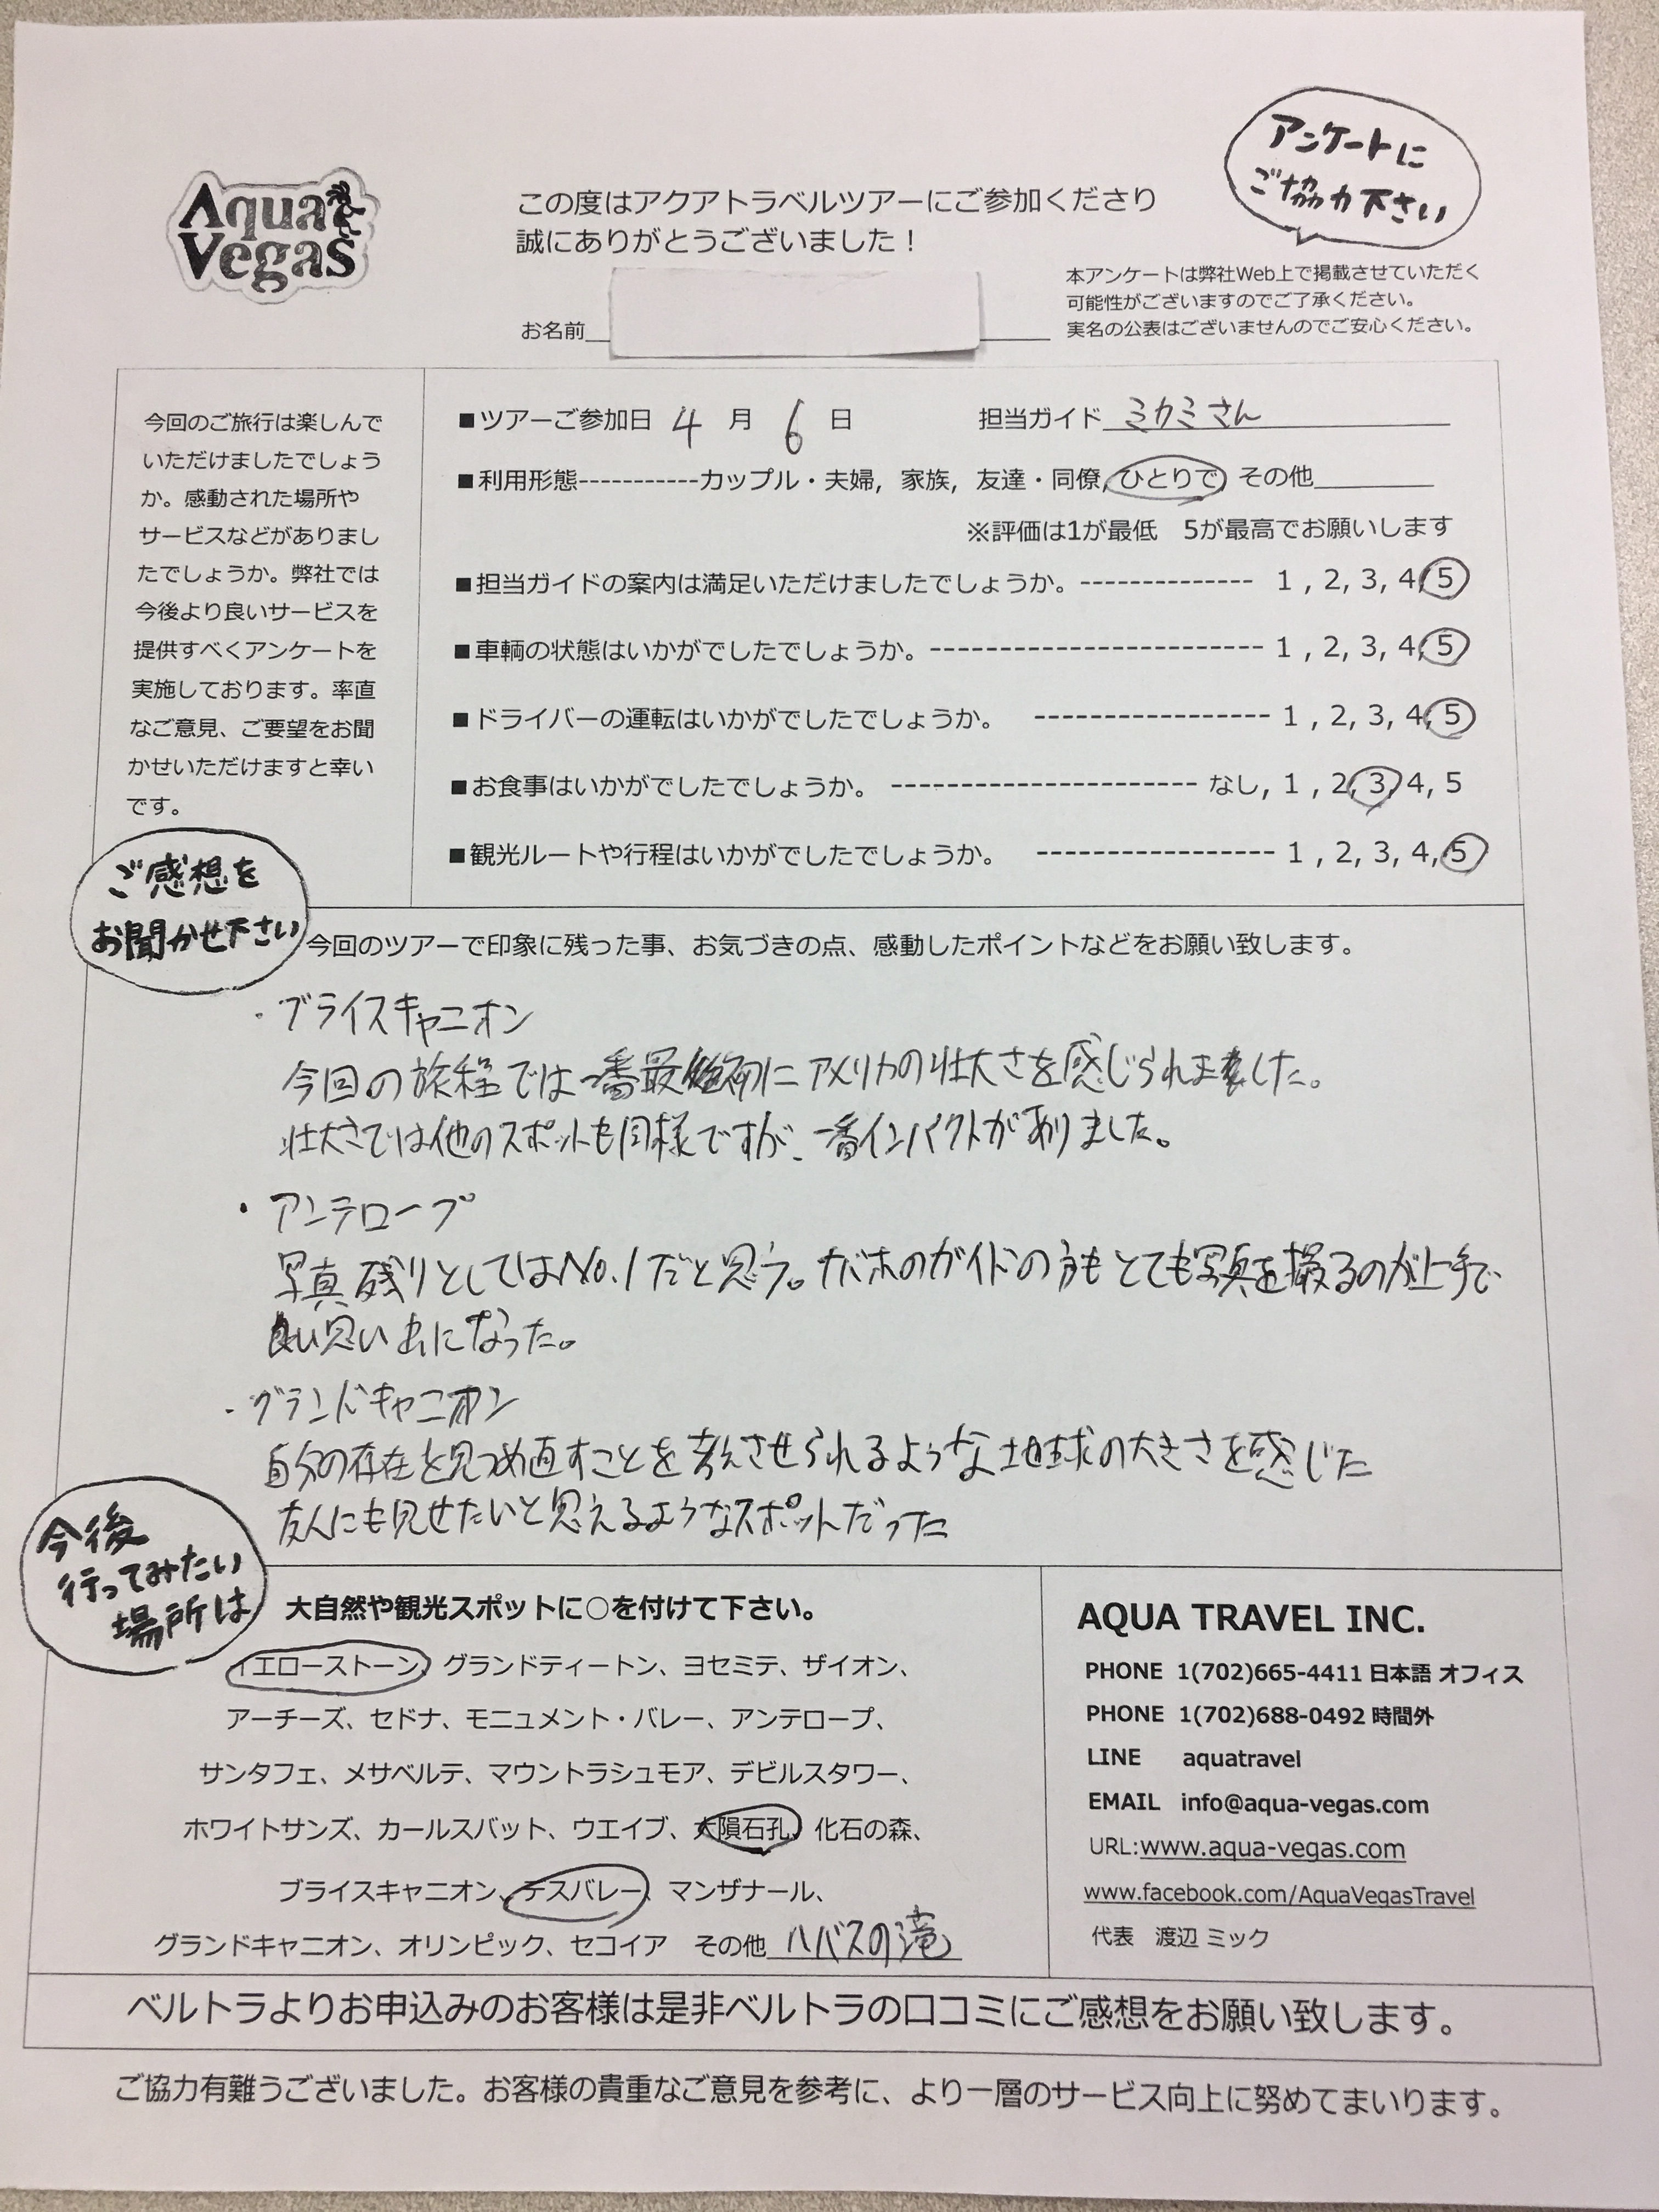 アンケートに
ご協力下さい
Aqua
Vegas
この度はアクアトラベルツアーにご参加くださり
誠にありがとうございました！
本アンケートは弊社Web上で掲載させていただく
可能性がございますのでご了承ください。
実名の公表はございませんのでご安心ください。
お名前
今回のご旅行は楽しんで
いただけましたでしょう
か。感動された場所や
サービスなどがありまし
たでしょうか。弊社では
今後より良いサービスを
提供すべくアンケートを
実施しております。率直
なご意見、ご要望をお聞
かせいただけますと幸い
です。
■ツアーご参加日 4 月 6 日 担当ガイド ミカミさん
■利用形態-----------カップル・夫婦, 家族, 友達・同僚, ひとりで, その他
※評価は1が最低 5が最高でお願いします
■担当ガイドの案内は満足いただけましたでしょうか。-------------- 1 , 2, 3, 4, 5
■車輌の状態はいかがでしたでしょうか。------------------------ 1 , 2, 3, 4, 5
■ドライバーの運転はいかがでしたでしょうか。 ----------------- 1 , 2, 3, 4, 5
■お食事はいかがでしたでしょうか。 ---------------------- なし, 1 , 2, 3, 4, 5
■観光ルートや行程はいかがでしたでしょうか。 ----------------- 1 , 2, 3, 4, 5
ご感想を
お聞かせ下さい
今回のツアーで印象に残った事、お気づきの点、感動したポイントなどをお願い致します。
・ブライスキャニオン
今回の旅程では一番最初にアメリカの壮大さを感じられました。
壮大さでは他のスポットも同様ですが、一番インパクトがありました。
・アンテロープ
写真残りとしてはNo.1だと思う。ナバホのガイドの方もとても写真を撮るのが上手で
良い思い出になった。
・グランドキャニオン
自分の存在を見つめ直すことを考えさせられるような地球の大きさを感じた
友人にも見せたいと思えるようなスポットだった
今後
行ってみたい
場所は
大自然や観光スポットに○を付けて下さい。
イエローストーン、グランドティートン、ヨセミテ、ザイオン、
アーチーズ、セドナ、モニュメント・バレー、アンテロープ、
サンタフェ、メサベルテ、マウントラシュモア、デビルスタワー、
ホワイトサンズ、カールスバット、ウエイブ、大隕石孔、化石の森、
ブライスキャニオン、デスバレー、マンザナール、
グランドキャニオン、オリンピック、セコイア その他 ハバスの滝
AQUA TRAVEL INC.
PHONE 1(702)665-4411 日本語 オフィス
PHONE 1(702)688-0492 時間外
LINE aquatravel
EMAIL info@aqua-vegas.com
URL:www.aqua-vegas.com
www.facebook.com/AquaVegasTravel
代表 渡辺 ミック
ベルトラよりお申込みのお客様は是非ベルトラの口コミにご感想をお願い致します。
ご協力有難うございました。お客様の貴重なご意見を参考に、より一層のサービス向上に努めてまいります。